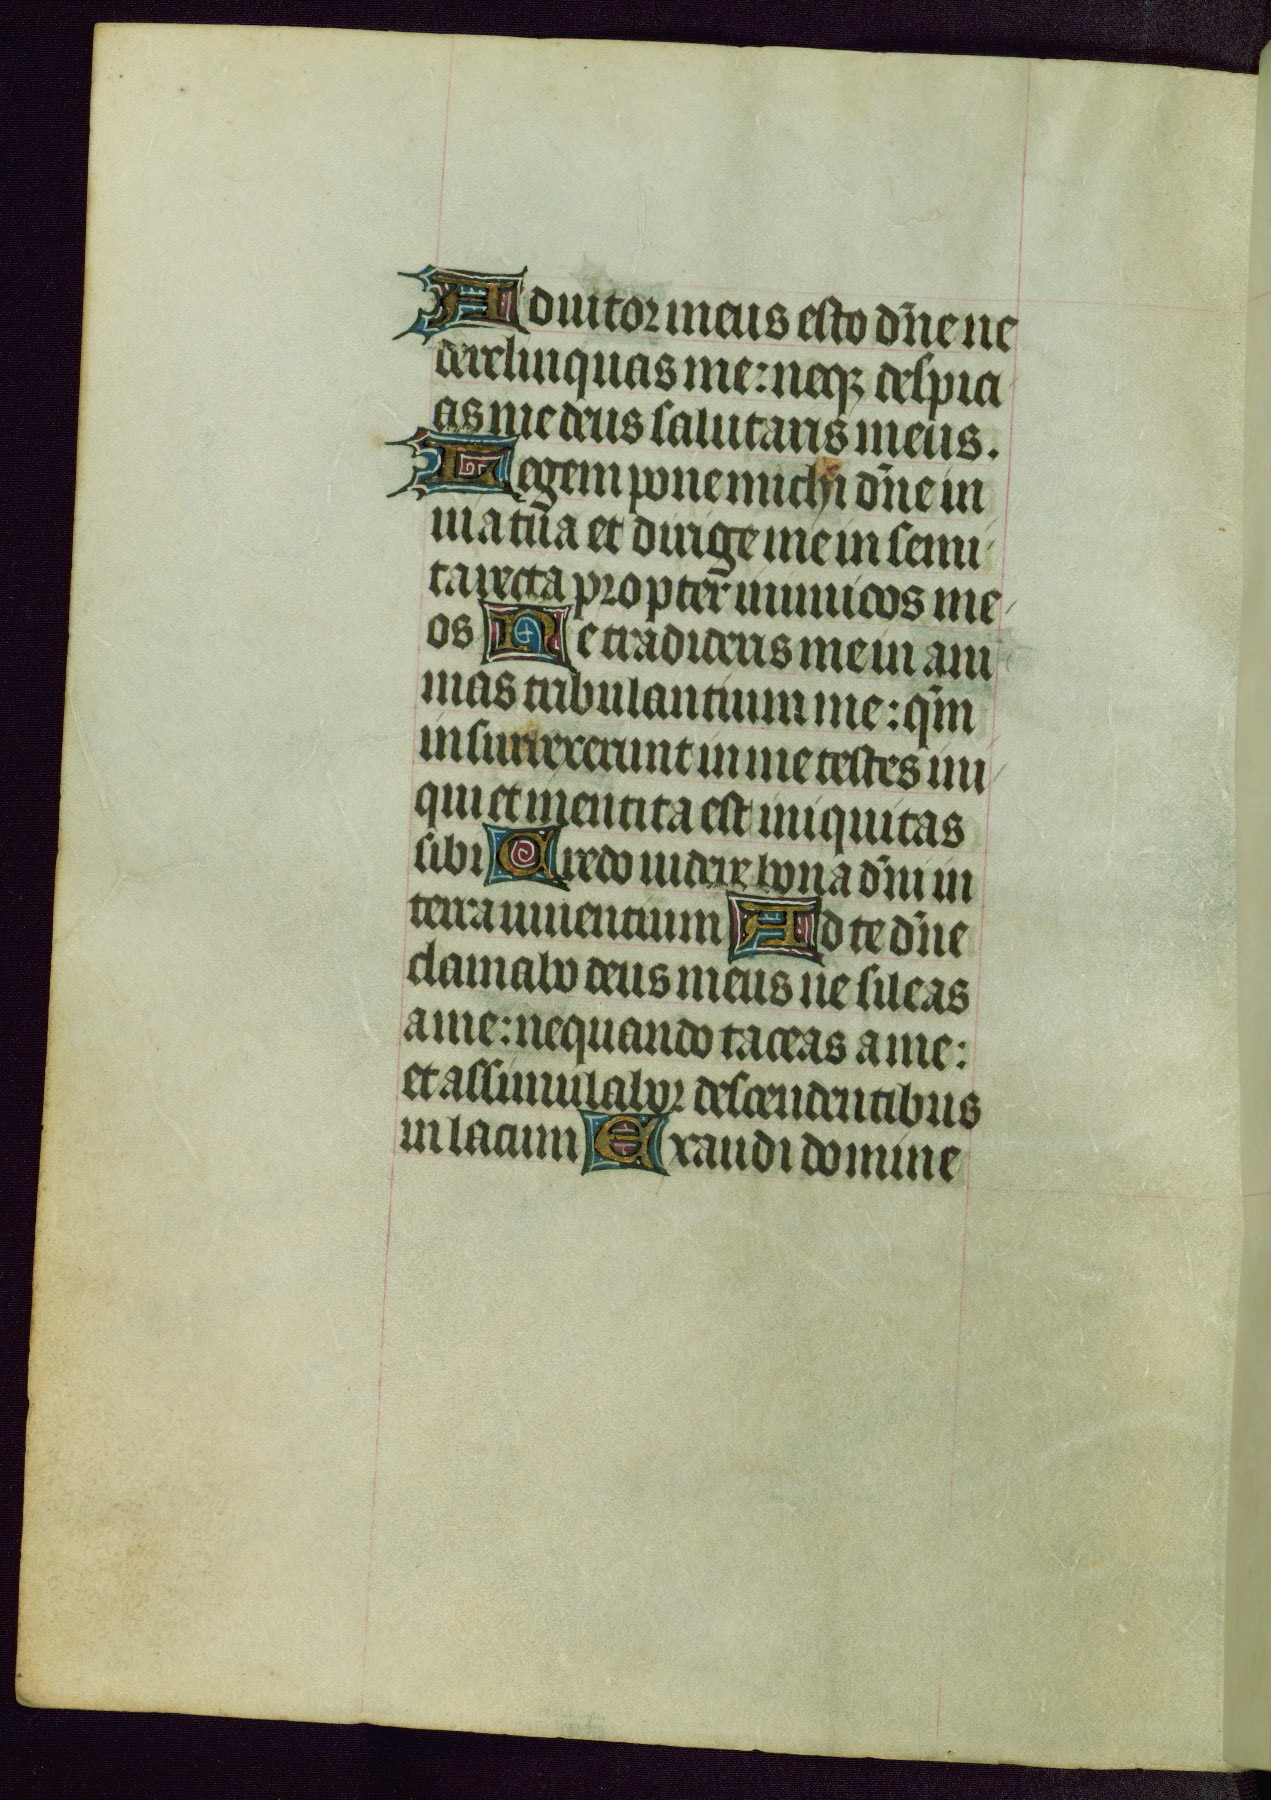 Adiutor meus esto dn̄e ne
derelinquas me: neqꝫ despici
as me deus salutaris meus.
Legem pone michi dn̄e in
uia tua et dirige me in semi
ta recta propter inimicos me
os Ne tradideris me in ani
mas tribulantium me: qm̄
insurrexerunt in me testes ini
qui et mentita est iniquitas
sibi Credo uidere bona dn̄i in
terra uiuentium Ad te dn̄e
clamabo deus meus ne sileas
a me: nequando taceas a me:
et assimilabor descendentibus
in lacum Exaudi domine